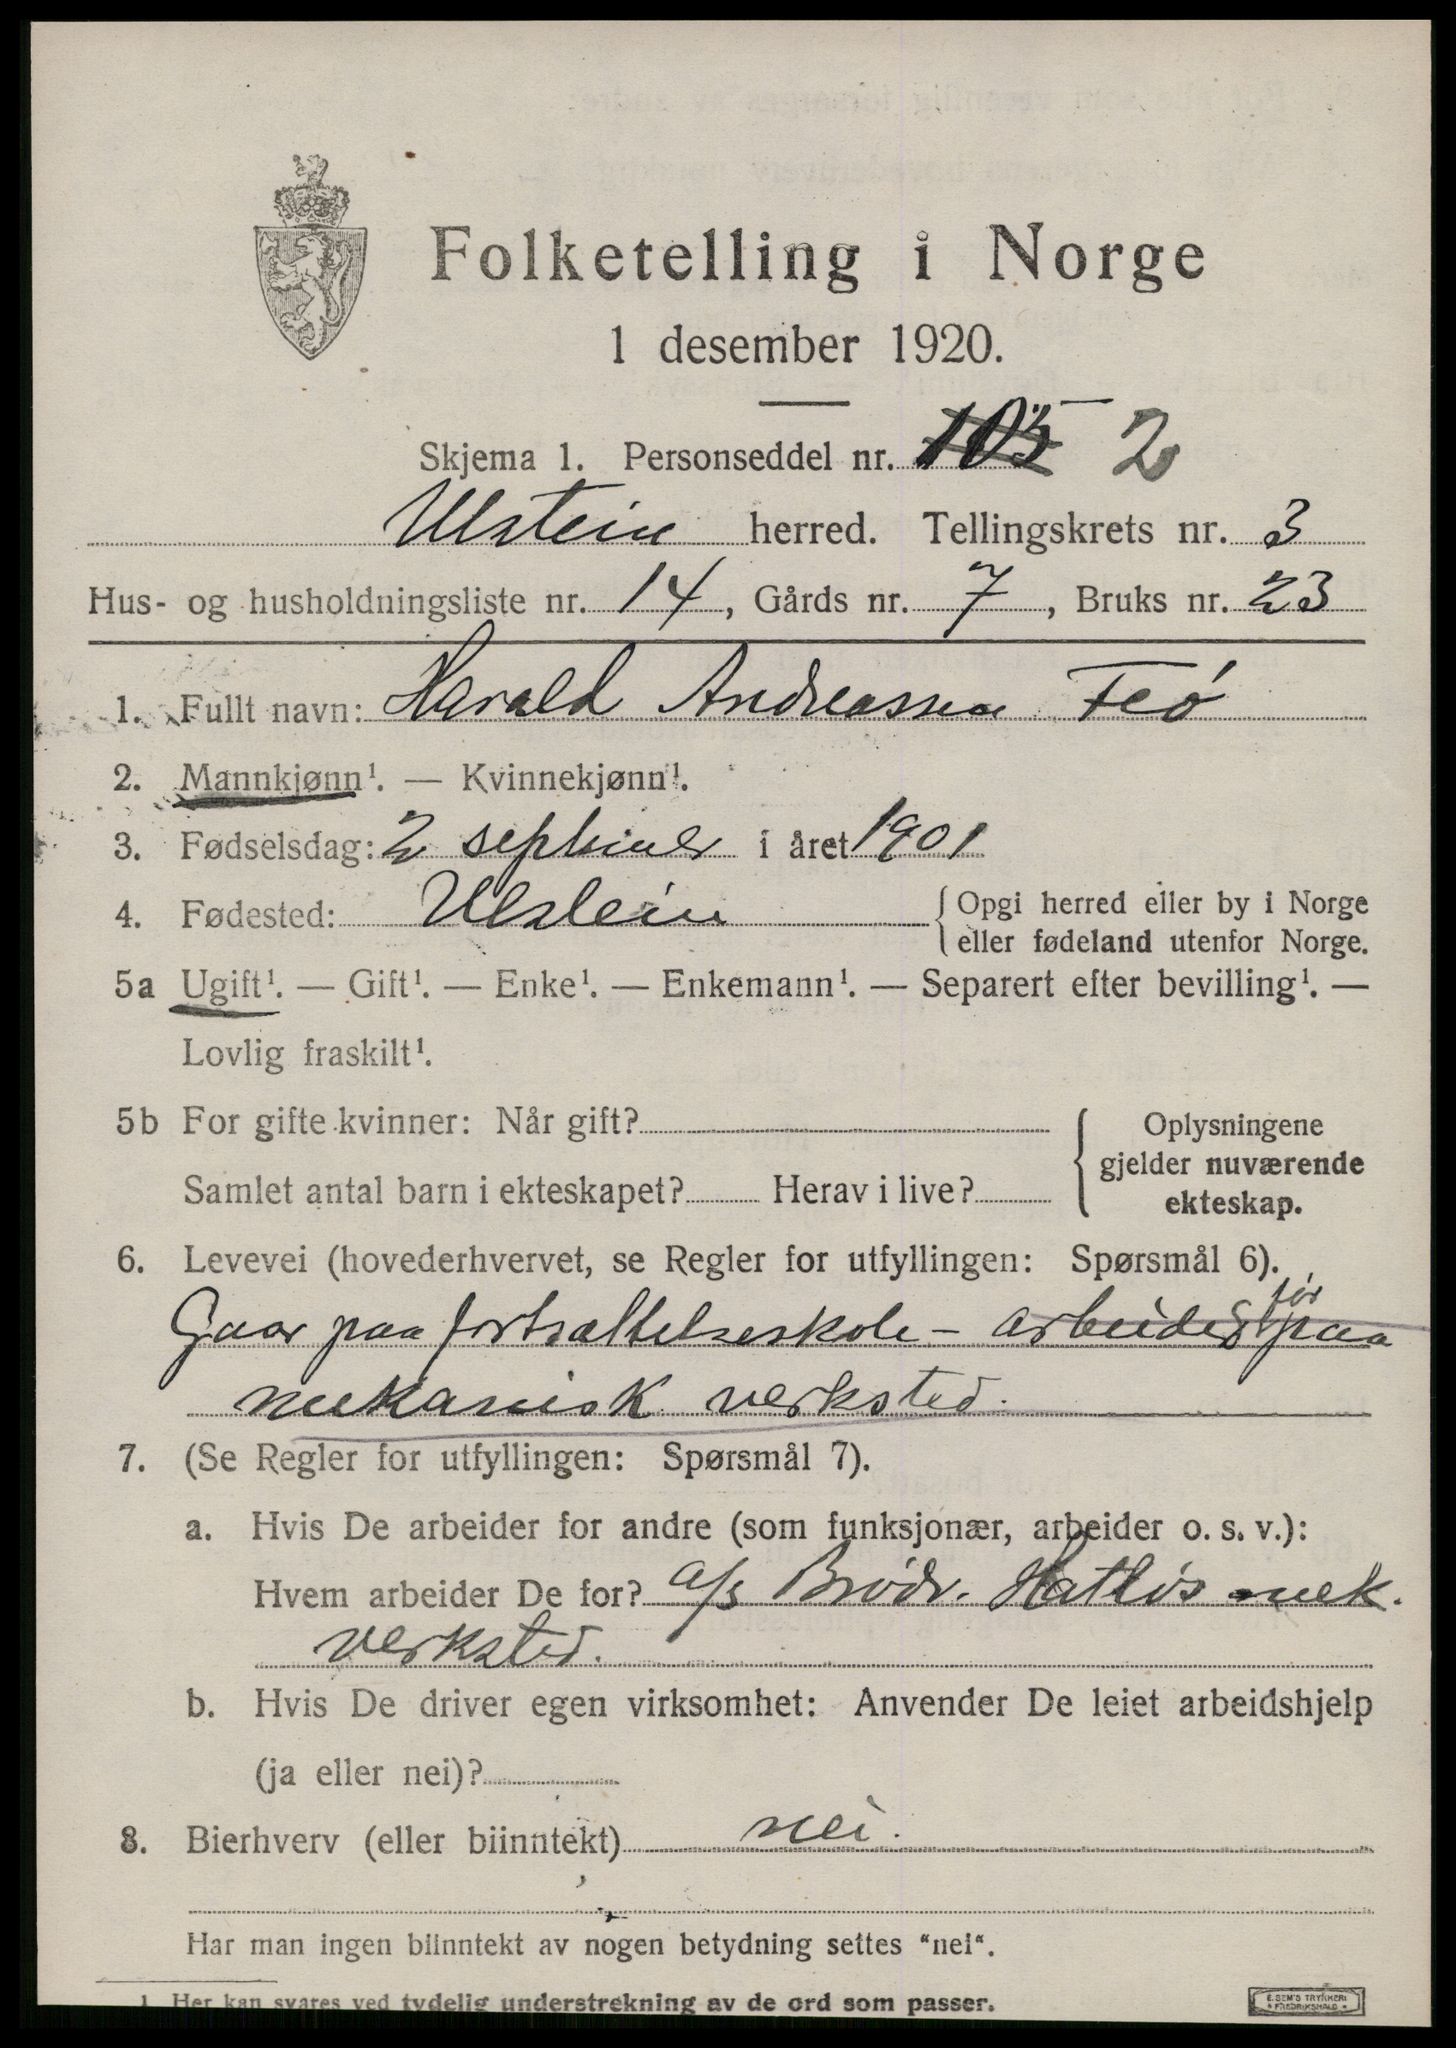 Folketelling i Norge
1 desember 1920.
Skjema 1. Personseddel nr. 105 2
Ulstein herred. Tellingskrets nr. 3
Hus- og husholdningsliste nr. 14, Gårds nr. 7, Bruks nr. 23
1. Fullt navn: Harald Andreassen Flø
2. Mannkjønn¹. — Kvinnekjønn¹.
3. Fødselsdag: 2 september i året 1901
4. Fødested: Ulstein { Opgi herred eller by i Norge
eller fødeland utenfor Norge.
5a Ugift¹. — Gift¹. — Enke¹. — Enkemann¹. — Separert efter bevilling¹. —
Lovlig fraskilt¹.
5b For gifte kvinner: Når gift? { Oplysningene
gjelder nuværende
Samlet antal barn i ekteskapet? Herav i live? ekteskap.
6. Levevei (hovederhvervet, se Regler for utfyllingen: Spørsmål 6).
før
Gaar paa fortsættelseskole - arbeidet paa
mekanisk verksted.
7. (Se Regler for utfyllingen: Spørsmål 7).
a. Hvis De arbeider for andre (som funksjonær, arbeider o. s. v.):
Hvem arbeider De for? a/s Brødr. Hatløs mek.
verksted.
b. Hvis De driver egen virksomhet: Anvender De leiet arbeidshjelp
(ja eller nei)?
8. Bierhverv (eller biinntekt) nei.
Har man ingen biinntekt av nogen betydning settes "nei".
1. Her kan svares ved tydelig understrekning av de ord som passer.
E. SEM'S TRYKKERI
FREDRIKSHALD